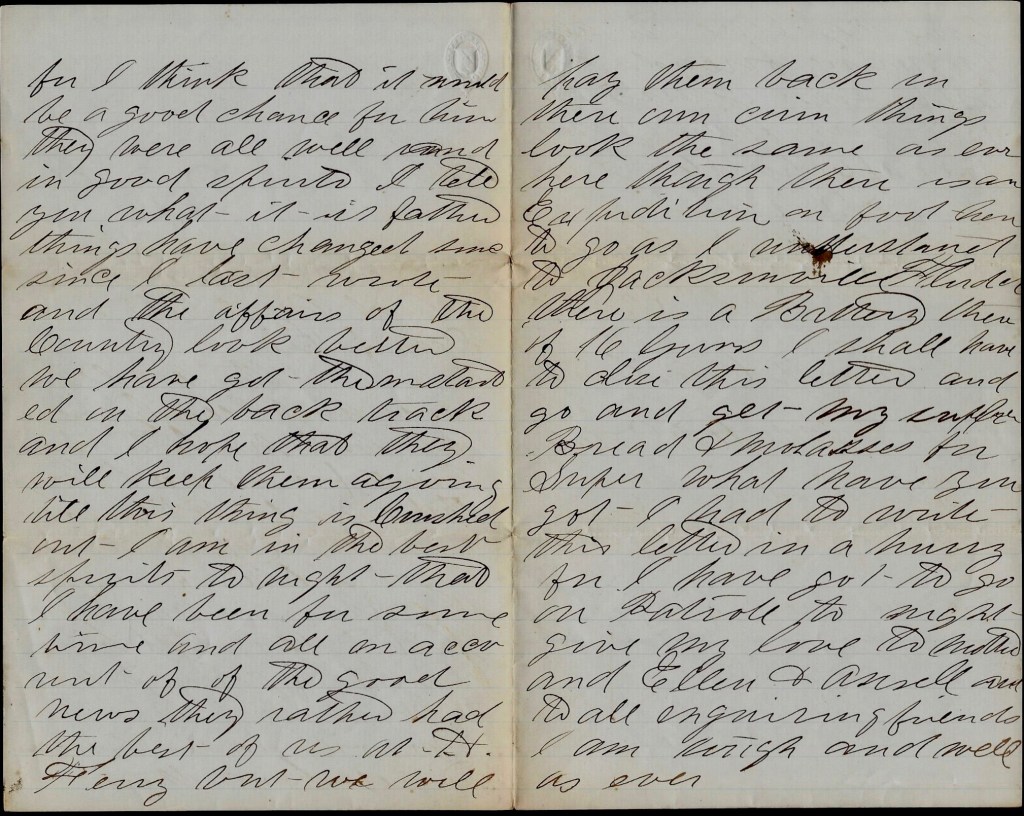 for I think that it would
be a good chance for him
they were all well and
in good spirits I tell
you what it is father
things have changed some
since I last wrote
and the affairs of the
Country look better
we have got them start
ed on the back track
and I hope that they
will keep them agoing
till this thing is Crushed
out I am in the best
spirits to night that
I have been for some
time and all on acco
unt of of the good
news they rather had
the best of us at H.
Ferry but we will
pay them back in
there own coin things
look the same as ever
here though there is an
Expedition on foot here
to go as I understand
to Jacksonville
there is a Battery there
of 16 Guns I shall have
to close this letter and
go and get my supper
Bread & Molasses for
Super what have you
got I had to write
this letter in a hurry
for I have got to go
on Patroll to night
give my love to mother
and Ellen & Ansell and
to all enquiring friends
I am tough and well
as ever